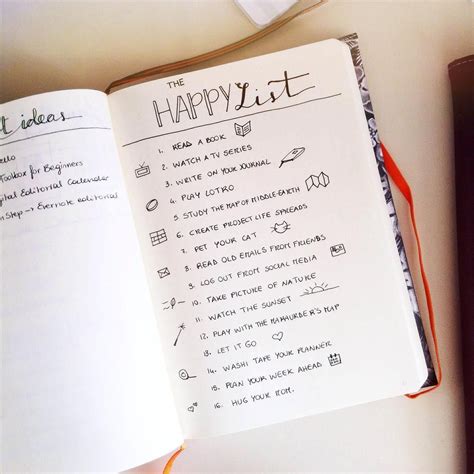 ideas
Toolbox for Beginners
Editorial Calendar
Step → Evernote editorial
THE
HAPPY List
1. READ A BOOK
2. WATCH A TV SERIES
3. WRITE ON YOUR JOURNAL
4. PLAY LOTRO
5. STUDY THE MAP OF MIDDLE-EARTH
6. CREATE PROJECT LIFE SPREADS
7. PET YOUR CAT
8. READ OLD EMAILS FROM FRIENDS
9. LOG OUT FROM SOCIAL MEDIA
10. TAKE PICTURE OF NATURE
11. WATCH THE SUNSET
12. PLAY WITH THE MARAUDER'S MAP
13. LET IT GO
14. WASHI TAPE YOUR PLANNER
15. PLAN YOUR WEEK AHEAD
16. HUG YOUR MOM.